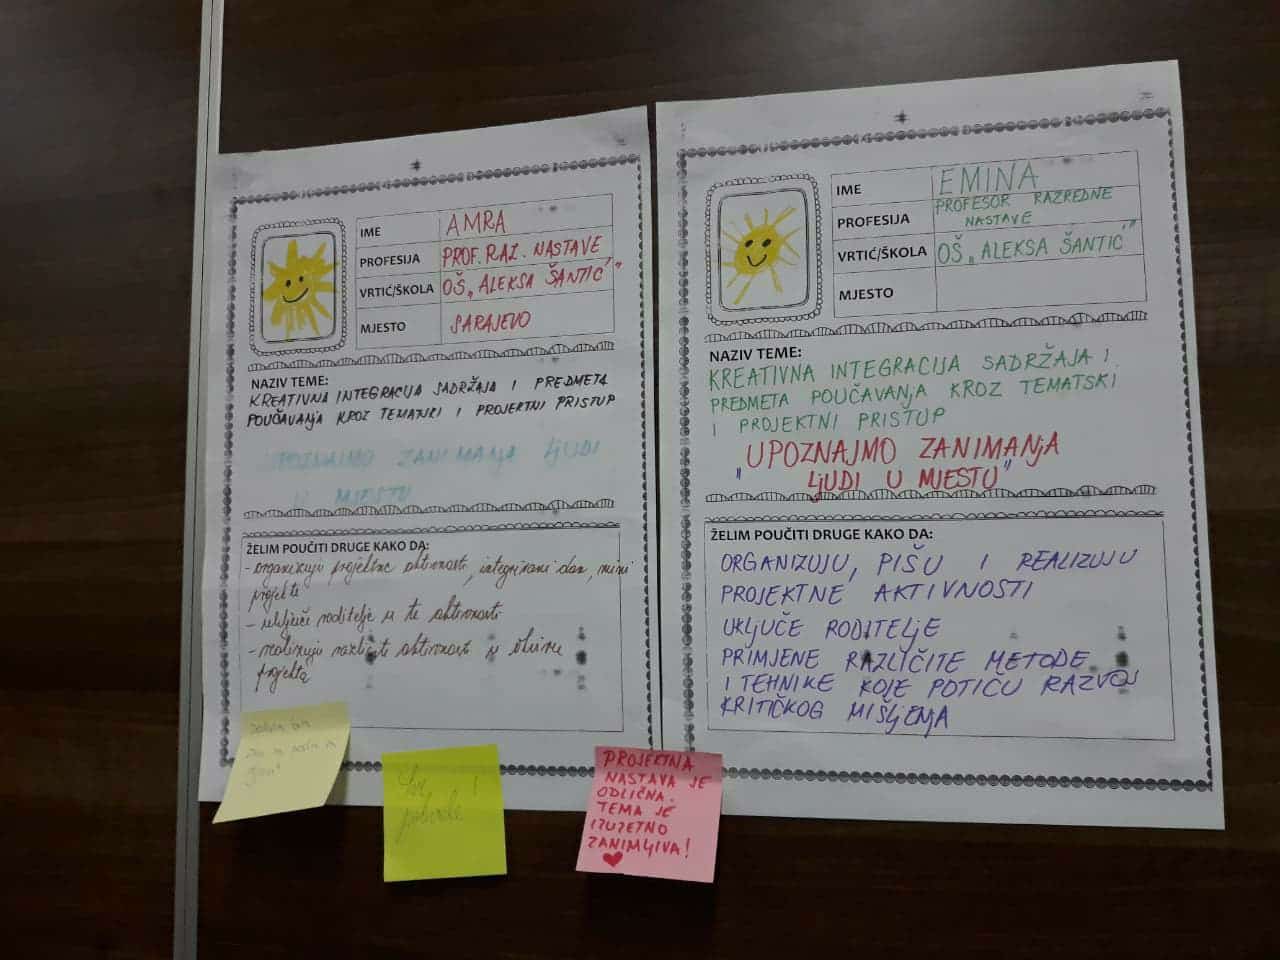 IME
AMRA
PROFESIJA
PROF. RAZ. NASTAVE
VRTIĆ/ŠKOLA
OŠ „ALEKSA ŠANTIĆ"
MJESTO
SARAJEVO
NAZIV TEME:
KREATIVNA INTEGRACIJA SADRŽAJA I PREDMETA
POUČAVANJA KROZ TEMATSKI I PROJEKTNI PRISTUP
UPOZNAJMO ZANIMANJA LJUDI
U MJESTU
ŽELIM POUČITI DRUGE KAKO DA:
- organizuju projektne aktivnosti, integrisani dan, mini
projekte
- uključe roditelje u te aktivnosti
- realizuju različite aktivnosti u okviru
projekta
IME
EMINA
PROFESIJA
PROFESOR RAZREDNE
NASTAVE
VRTIĆ/ŠKOLA
OŠ „ALEKSA ŠANTIĆ"
MJESTO
NAZIV TEME:
KREATIVNA INTEGRACIJA SADRŽAJA I
PREDMETA POUČAVANJA KROZ TEMATSKI
I PROJEKTNI PRISTUP
"UPOZNAJMO ZANIMANJA
LJUDI U MJESTU"
ŽELIM POUČITI DRUGE KAKO DA:
ORGANIZUJU, PIŠU I REALIZUJU
PROJEKTNE AKTIVNOSTI
UKLJUČE RODITELJE
PRIMJENE RAZLIČITE METODE
I TEHNIKE KOJE POTIČU RAZVOJ
KRITIČKOG MIŠLJENJA
PROJEKTNA
NASTAVA JE
ODLIČNA.
TEMA JE
IZUZETNO
ZANIMLJIVA!